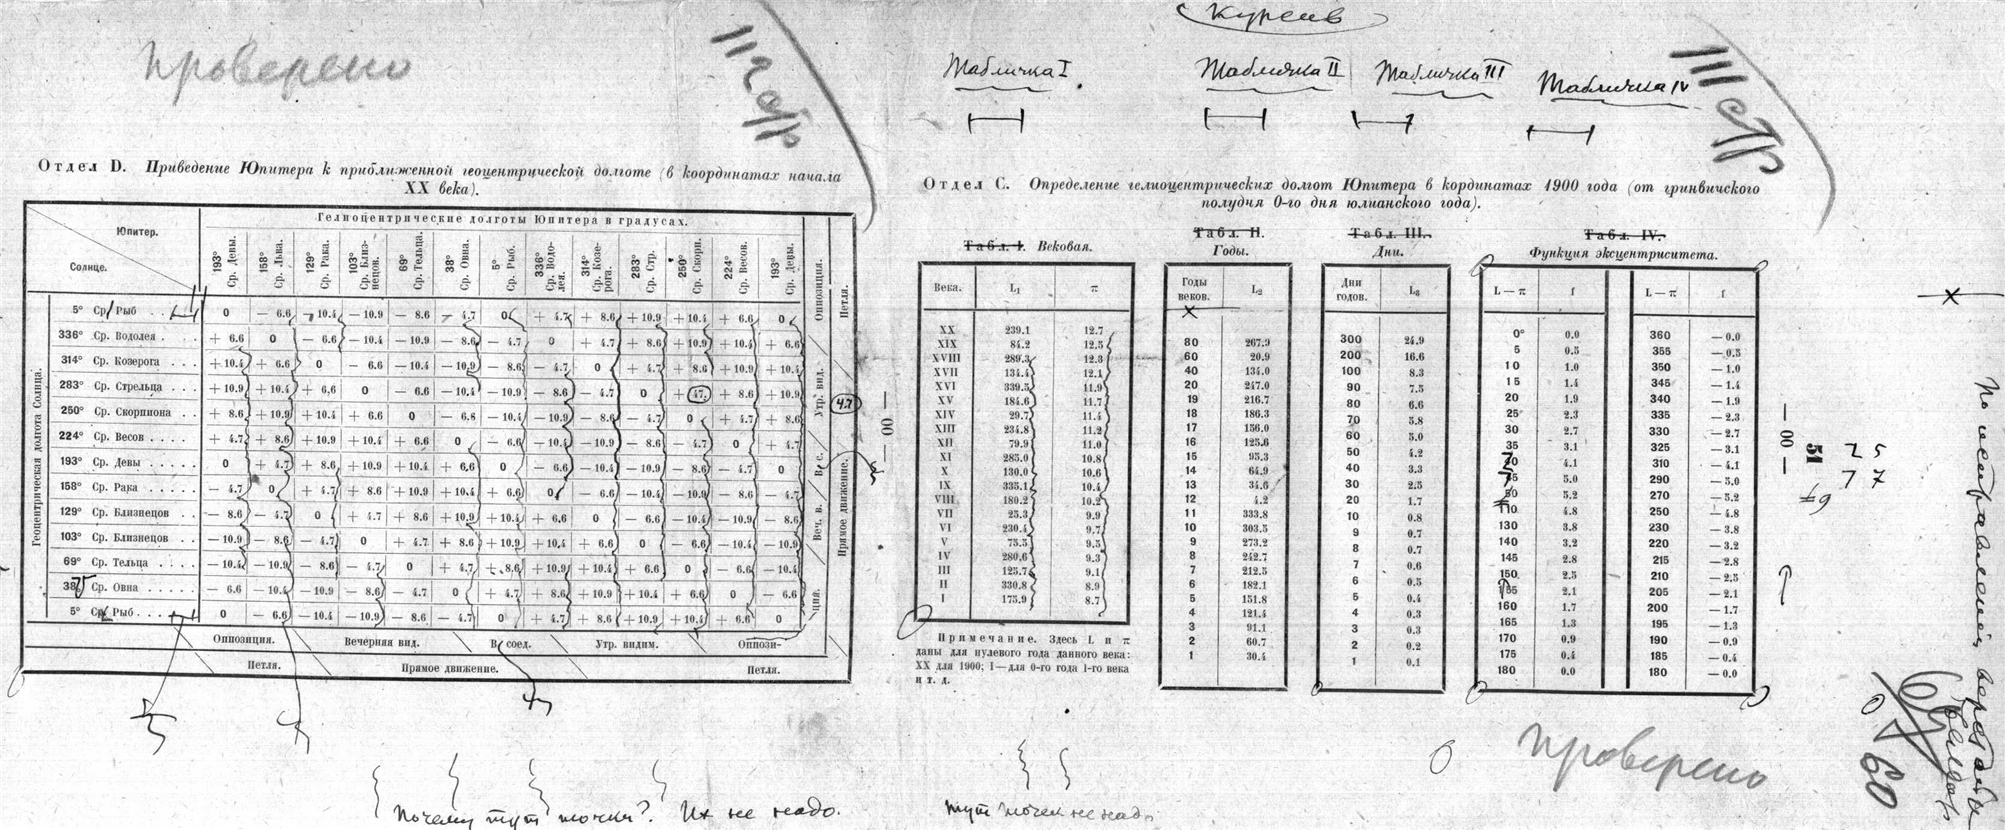 Проверено
II стр
Отдел D. Приведение Юпитера к приближенной геоцентрической долготе (в координатах начала
XX века).
Юпитер.
Солнце.
Гелиоцентрические долготы Юпитера в градусах.
193° Ср. Девы.
158° Ср. Льва.
129° Ср. Рака.
103° Ср. Близнецов.
69° Ср. Тельца.
38° Ср. Овна.
5° Ср. Рыб.
336° Ср. Водолея.
314° Ср. Козерога.
283° Ср. Стр.
250° Ср. Скорп.
224° Ср. Весов.
193° Ср. Девы.
Геоцентрическая долгота Солнца.
5° Ср. Рыб . . 0 — 6.6 — 10.4 — 10.9 — 8.6 — 4.7 0 + 4.7 + 8.6 + 10.9 + 10.4 + 6.6 0
336° Ср. Водолея . . . + 6.6 0 — 6.6 — 10.4 — 10.9 — 8.6 — 4.7 0 + 4.7 + 8.6 + 10.9 + 10.4 + 6.6
314° Ср. Козерога . . . + 10.4 + 6.6 0 — 6.6 — 10.4 — 10.9 — 8.6 — 4.7 0 + 4.7 + 8.6 + 10.9 + 10.4
283° Ср. Стрельца . . . + 10.9 + 10.4 + 6.6 0 — 6.6 — 10.4 — 10.9 — 8.6 — 4.7 0 + 47. + 8.6 + 10.9
250° Ср. Скорпиона . . + 8.6 + 10.9 + 10.4 + 6.6 0 — 6.6 — 10.4 — 10.9 — 8.6 — 4.7 0 + 4.7 + 8.6
224° Ср. Весов . . . . + 4.7 + 8.6 + 10.9 + 10.4 + 6.6 0 — 6.6 — 10.4 — 10.9 — 8.6 — 4.7 0 + 4.7
193° Ср. Девы . . . . . 0 + 4.7 + 8.6 + 10.9 + 10.4 + 6.6 0 — 6.6 — 10.4 — 10.9 — 8.6 — 4.7 0
158° Ср. Рака . . . . . — 4.7 0 + 4.7 + 8.6 + 10.9 + 10.4 + 6.6 0 — 6.6 — 10.4 — 10.9 — 8.6 — 4.7
129° Ср. Близнецов . . — 8.6 — 4.7 0 + 4.7 + 8.6 + 10.9 + 10.4 + 6.6 0 — 6.6 — 10.4 — 10.9 — 8.6
103° Ср. Близнецов . . — 10.9 — 8.6 — 4.7 0 + 4.7 + 8.6 + 10.9 + 10.4 + 6.6 0 — 6.6 — 10.4 — 10.9
69° Ср. Тельца . . . — 10.4 — 10.9 — 8.6 — 4.7 0 + 4.7 + 8.6 + 10.9 + 10.4 + 6.6 0 — 6.6 — 10.4
38° Ср. Овна . . . . — 6.6 — 10.4 — 10.9 — 8.6 — 4.7 0 + 4.7 + 8.6 + 10.9 + 10.4 + 6.6 0 — 6.6
5° Ср. Рыб . . . . 0 — 6.6 — 10.4 — 10.9 — 8.6 — 4.7 0 + 4.7 + 8.6 + 10.9 + 10.4 + 6.6 0
Оппозиция. Вечерняя вид. В. соед. Утр. видим. Оппози-
Петля. Прямое движение. Петля.
Оппозиция.
Утр. вид.
В. с.
Веч. в.
ция.
Петля.
Прямое движение.
4.7
— 00 —
Почему тут точки? Их не надо.
Курсив
Табличка I
Табличка II
Табличка III
Табличка IV
III стр
Отдел С. Определение гелиоцентрических долгот Юпитера в кординатах 1900 года (от гринвичского
полудня 0-го дня юлианского года).
Табл. I. Вековая.
Века. L₁ π
XX 239.1 12.7
XIX 84.2 12.5
XVIII 289.3 12.3
XVII 134.4 12.1
XVI 339.5 11.9
XV 184.6 11.7
XIV 29.7 11.4
XIII 234.8 11.2
XII 79.9 11.0
XI 285.0 10.8
X 130.0 10.6
IX 335.1 10.4
VIII 180.2 10.2
VII 25.3 9.9
VI 230.4 9.7
V 75.5 9.5
IV 280.6 9.3
III 125.7 9.1
II 330.8 8.9
I 175.9 8.7
Примечание. Здесь L и π
даны для нулевого года данного века:
XX для 1900; I—для 0-го года 1-го века
и т. д.
Табл. II.
Годы.
Годы веков. L₂
80 267.9
60 20.9
40 134.0
20 247.0
19 216.7
18 186.3
17 156.0
16 125.6
15 95.3
14 64.9
13 34.6
12 4.2
11 333.8
10 303.5
9 273.2
8 242.7
7 212.5
6 182.1
5 151.8
4 121.4
3 91.1
2 60.7
1 30.4
Табл. III.
Дни.
Дни годов. L₃
300 24.9
200 16.6
100 8.3
90 7.5
80 6.6
70 5.8
60 5.0
50 4.2
40 3.3
30 2.5
20 1.7
10 0.8
9 0.7
8 0.7
7 0.6
6 0.5
5 0.4
4 0.3
3 0.3
2 0.2
1 0.1
Табл. IV.
Функция эксцентриситета.
L — π f L — π f
0° 0.0 360 — 0.0
5 0.5 355 — 0.5
10 1.0 350 — 1.0
15 1.4 345 — 1.4
20 1.9 340 — 1.9
25 2.3 335 — 2.3
30 2.7 330 — 2.7
35 3.1 325 — 3.1
4.1 310 — 4.1
5.0 290 — 5.0
5.2 270 — 5.2
110 4.8 250 — 4.8
130 3.8 230 — 3.8
140 3.2 220 — 3.2
145 2.8 215 — 2.8
150 2.5 210 — 2.5
155 2.1 205 — 2.1
160 1.7 200 — 1.7
165 1.3 195 — 1.3
170 0.9 190 — 0.9
175 0.4 185 — 0.4
180 0.0 180 — 0.0
— 00 —
51
25
77
По исправлении верстать
Проверено
тут точек не надо
60